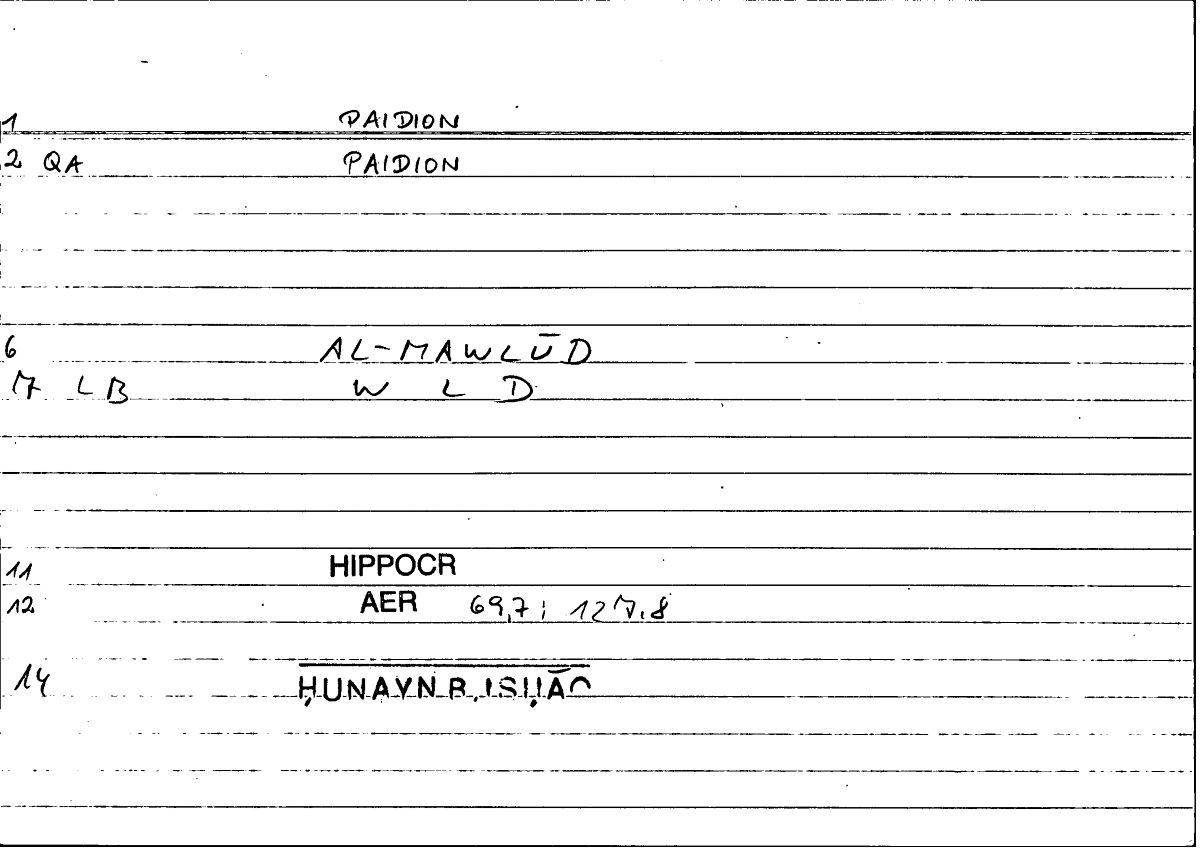 1 PAIDION
2 QA PAIDION
6 AL-MAWLŪD
7 LB W L D
11 HIPPOCR
12 AER 69,7; 127.8
14 ḤUNAYN B. ISḤĀQ